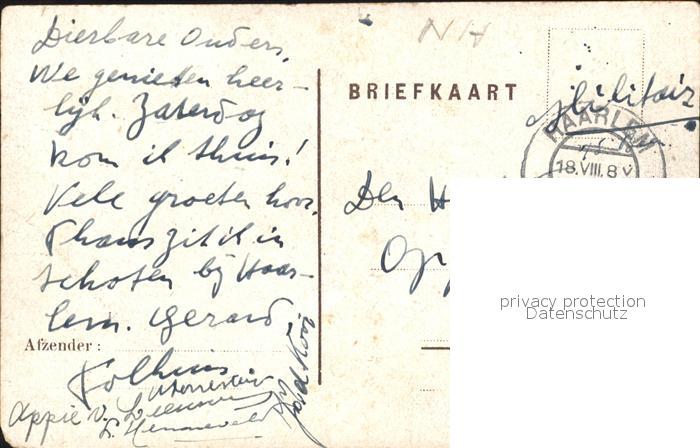 Dierbare Ouders,
We genieten heer-
lijk. Zaterdag
kom ik thuis!
Vele groeten hoor.
Thans zit ik in
Schoten bij Haar-
lem. Gerard
Afzender :
Appie v.
NH
BRIEFKAART
Militair
HAARLEM
18.VIII. 8 V
Den H
privacy protection
Datenschutz